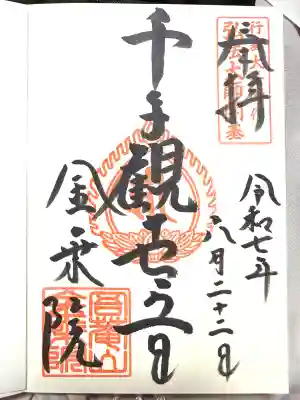 奉拝
令和七年
八月二十二日
千手観世音
金乗院